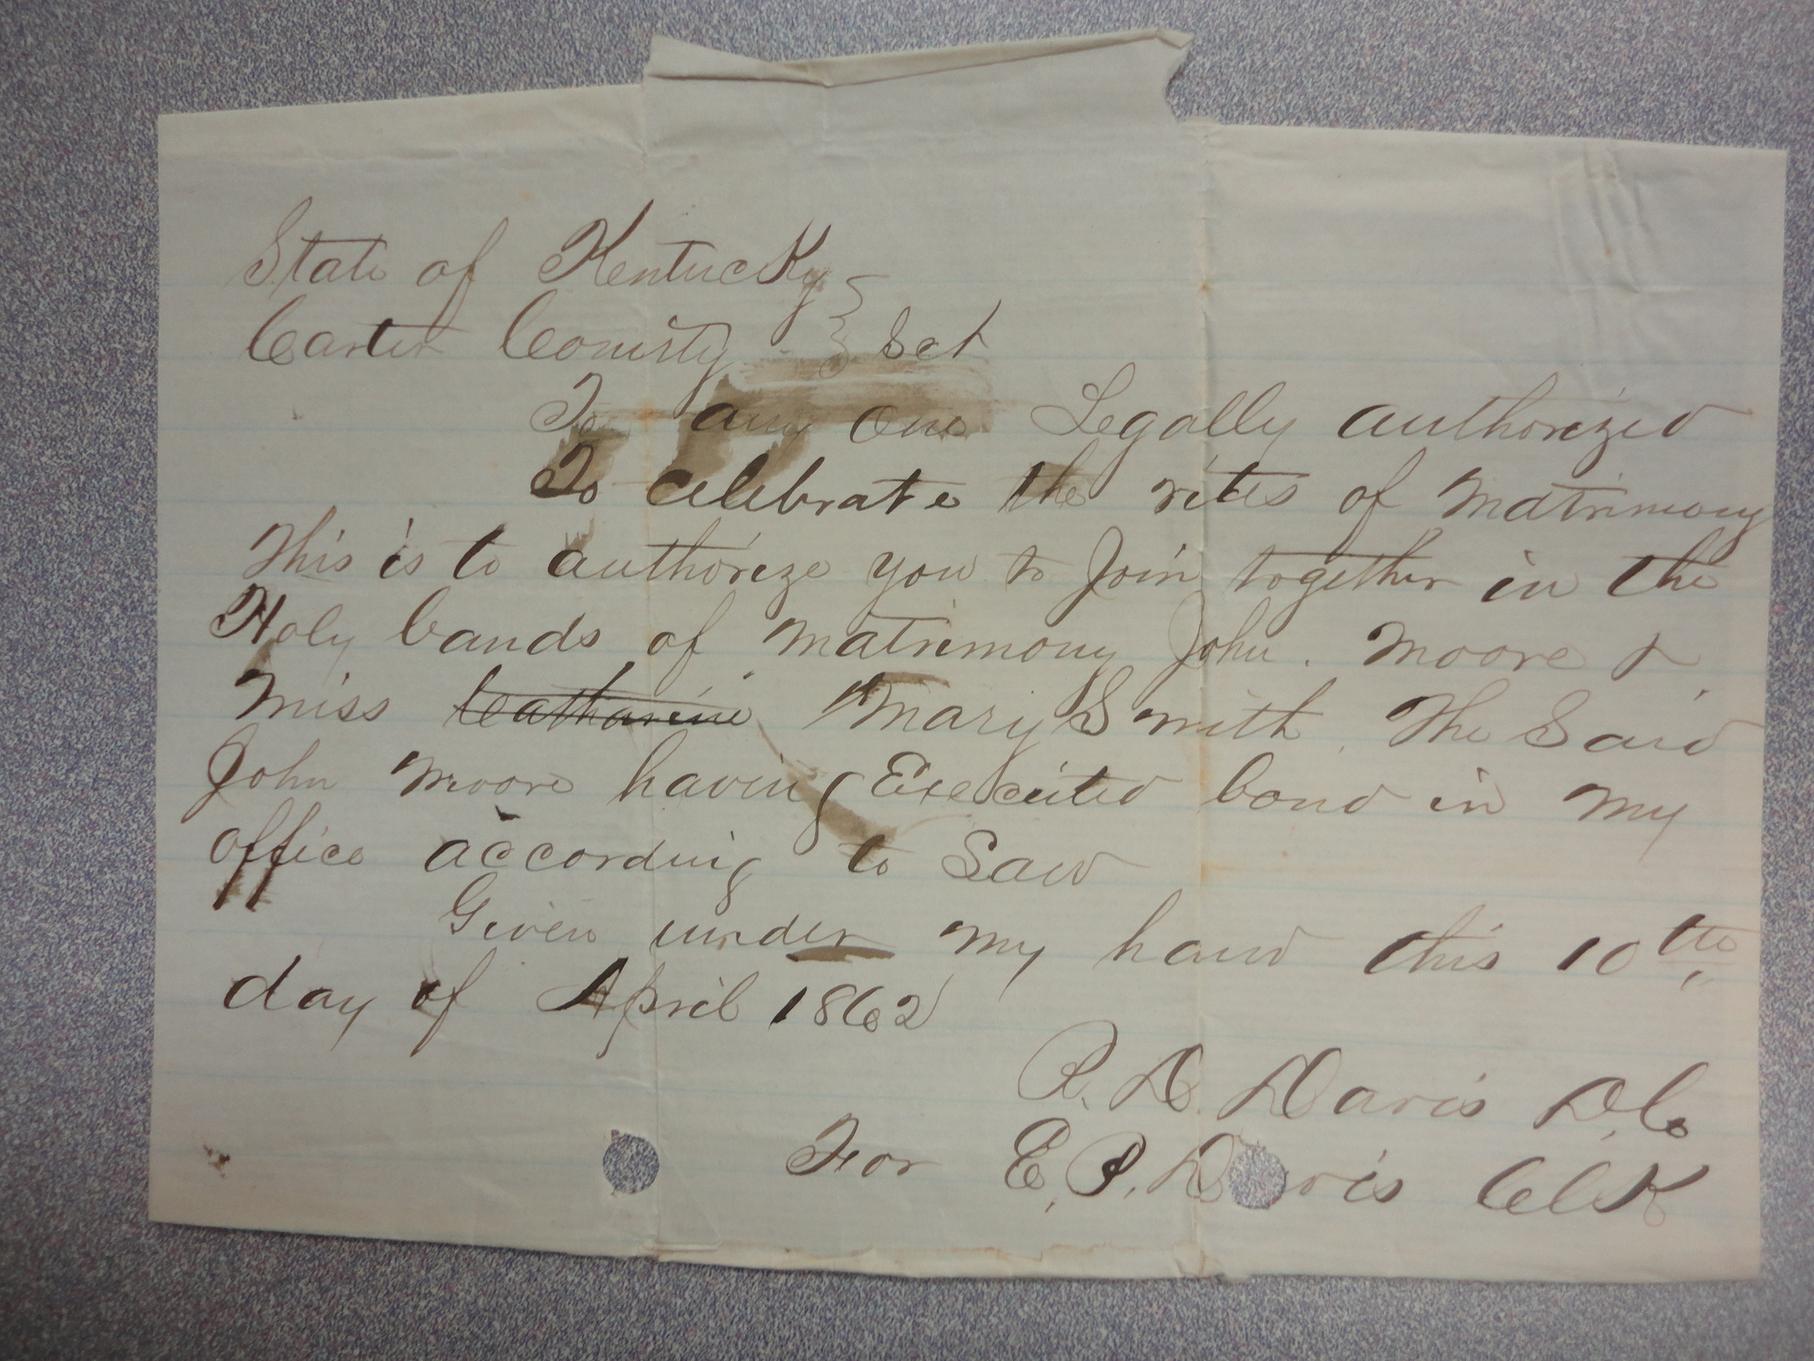 State of Kentucky }
Carter County } Sct
To any one Legally authorized
To celebrate the rites of matrimony
This is to authorize you to Join together in the
Holy bands of matrimony John. Moore &
Miss ~~Catharine~~ Mary Smith. The Said
John Moore having Executed bond in my
office according to Law
Given under my hand this 10th
day of April 1862
R. D. Davis D.C.
For E. P. Davis Clk